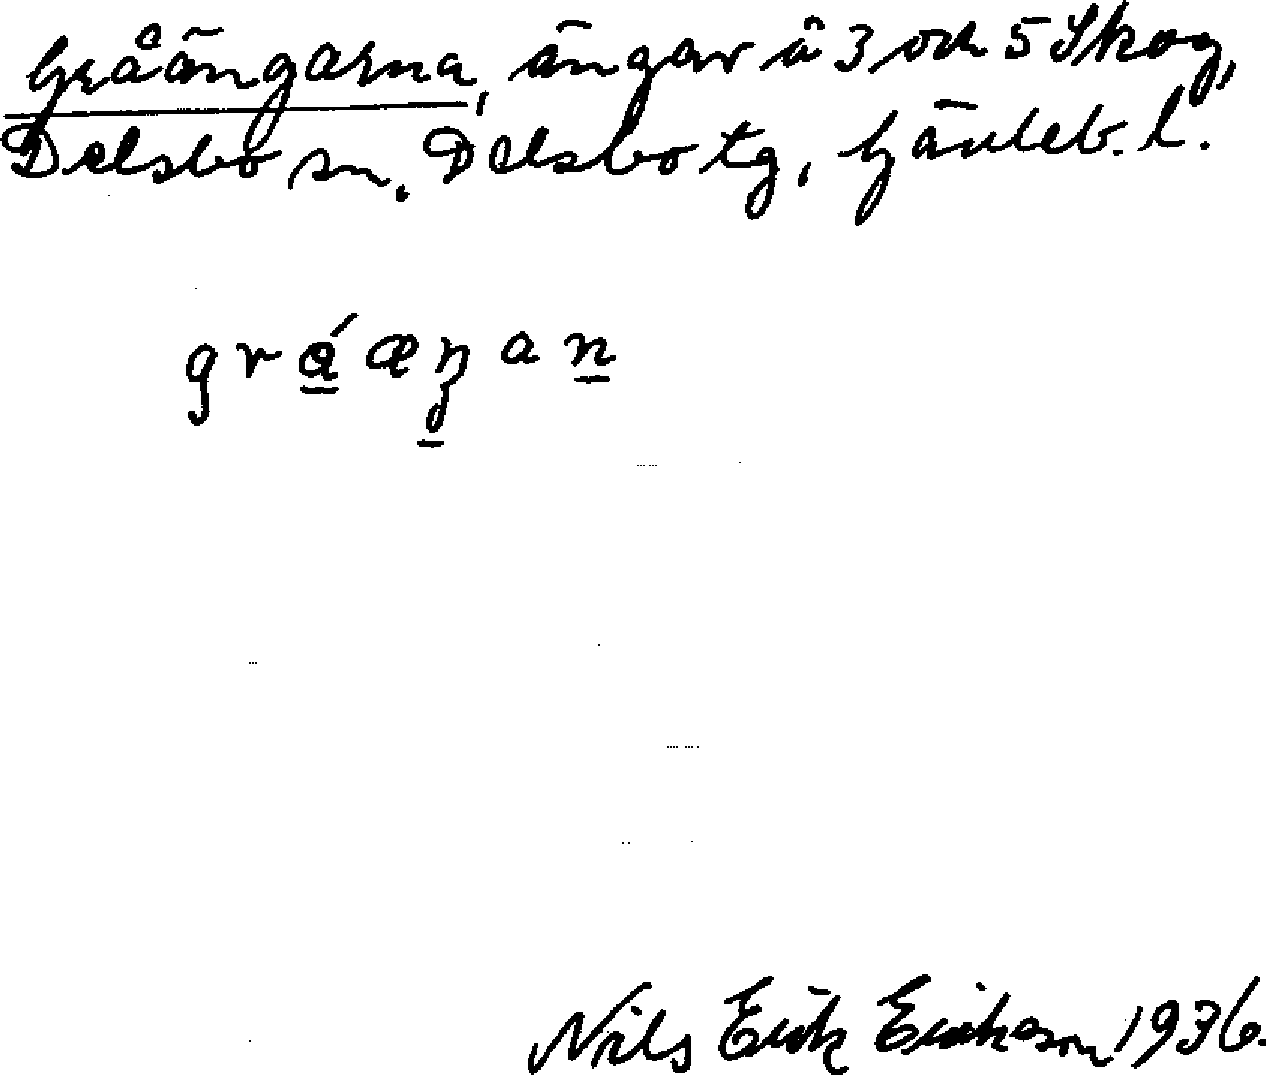 Gråängarna, ängar å 3 och 5 Skog,
Delsbo sn. Delsbo tg, Gävleb. l.
grǻæŋan
Nils Erik Erikson 1936.